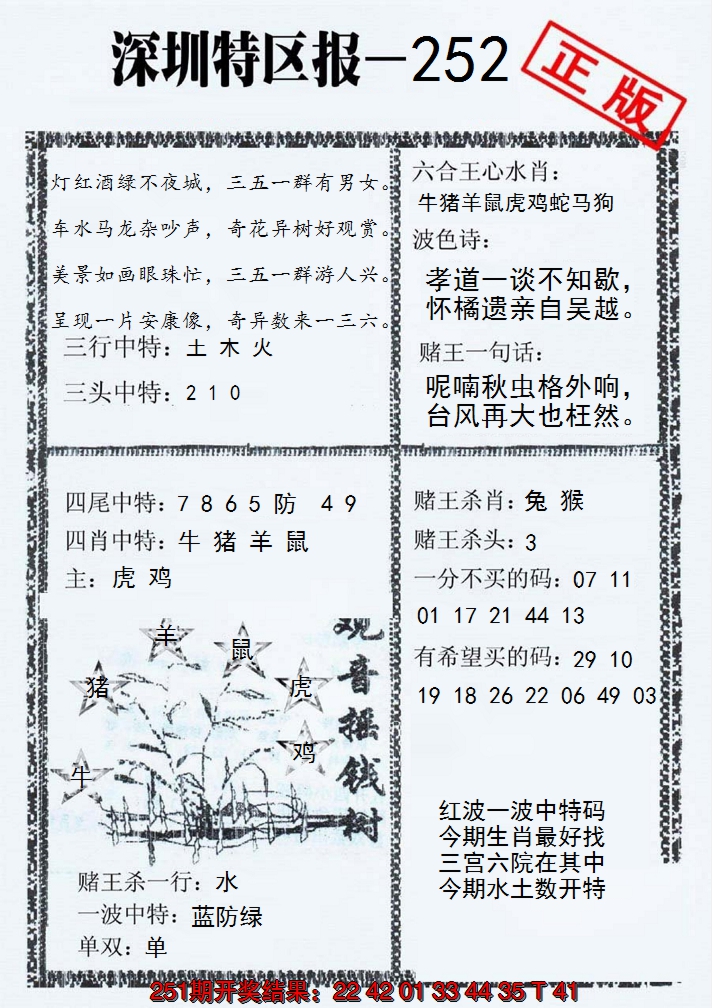 深圳特区报—252
正版
灯红酒绿不夜城，三五一群有男女。
车水马龙杂吵声，奇花异树好观赏。
美景如画眼珠忙，三五一群游人兴。
呈现一片安康像，奇异数来一三六。
三行中特：土 木 火
三头中特：2 1 0
六合王心水肖：
牛猪羊鼠虎鸡蛇马狗
波色诗：
孝道一谈不知歇，
怀橘遗亲自吴越。
赌王一句话：
呢喃秋虫格外响，
台风再大也枉然。
四尾中特：7 8 6 5 防 4 9
四肖中特：牛 猪 羊 鼠
主：虎 鸡
羊
鼠
猪
虎
鸡
牛
观音摇钱树
赌王杀一行：水
一波中特：蓝防绿
单双：单
赌王杀肖：兔 猴
赌王杀头：3
一分不买的码：07 11
01 17 21 44 13
有希望买的码：29 10
19 18 26 22 06 49 03
红波一波中特码
今期生肖最好找
三宫六院在其中
今期水土数开特
251期开奖结果：22 42 01 33 44 35 T 41